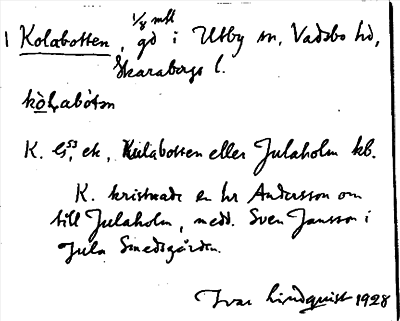 1/8 mtl
1 Kolabotten, gd i Utby sn, Vadsbo hd,
Skaraborgs l.
kòLabòtən
K. G, ek, Kulabotten eller Julaholm kb.
K. kristnade en hr Andersson om
till Julaholm, medd. Sven Jansson i
Jula Smedsgården.
Ivar Lindquist 1928